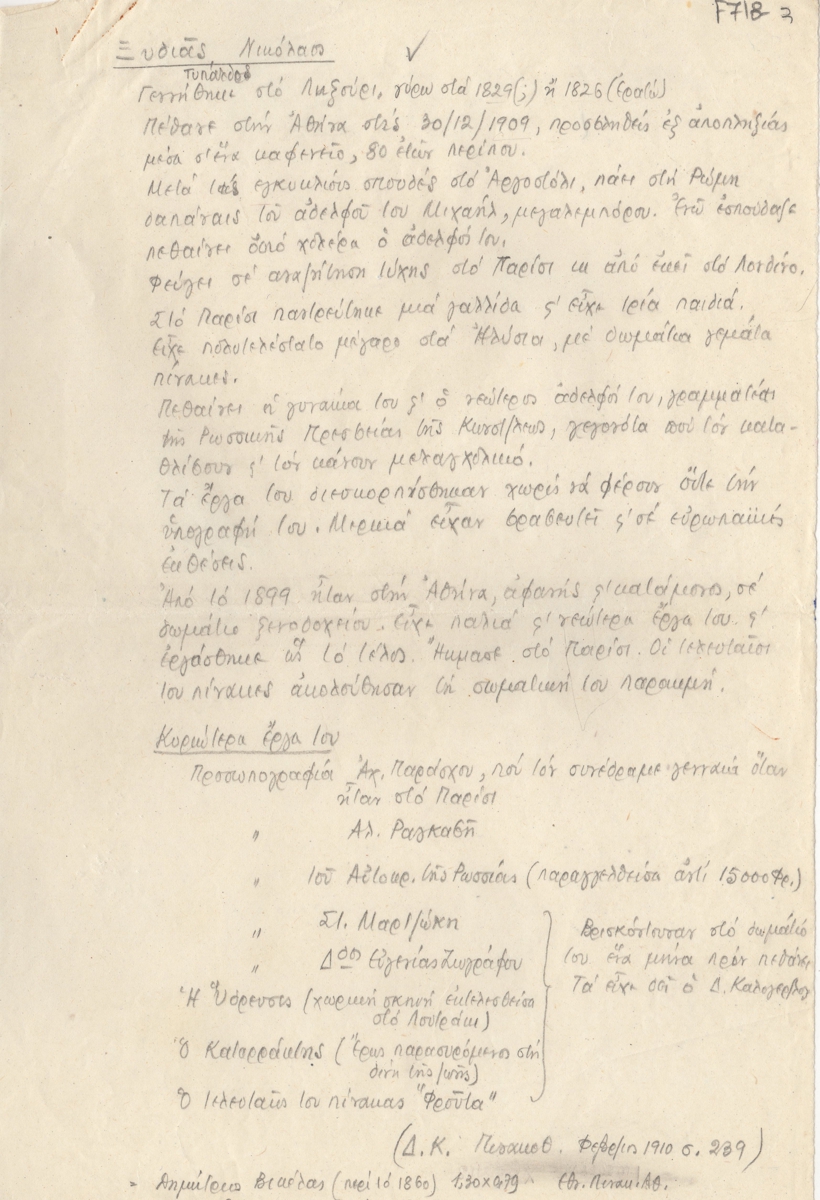 F71B 3
Ξυδιᾶς Νικόλαος ✓
Τυπάλδος
Γεννήθηκε στό Ληξούρι, γύρω στά 1829(;) ἤ 1826 (Ἐρατώ)
Πέθανε στήν Ἀθήνα στίς 30/12/1909, προσβληθείς ἐξ ἀποπληξίας
μέσα σ' ἕνα καφενεῖο, 80 ἐτῶν περίπου.
Μετά τάς ἐγκυκλίους σπουδές στό Ἀργοστόλι, πάει στή Ρώμη
δαπάναις τοῦ ἀδελφοῦ του Μιχαήλ, μεγαλεμπόρου. Ἐνῶ ἐσπούδαζε
πεθαίνει ἀπό χολέρα ὁ ἀδελφός του.
Φεύγει σέ ἀναζήτηση τύχης στό Παρίσι κι ἀπό ἐκεῖ στό Λονδίνο.
Στό Παρίσι παντρεύτηκε μιά γαλλίδα κ' εἶχε τρία παιδιά.
Εἶχε πολυτελέστατο μέγαρο στά Ἠλύσια, μέ δωμάτια γεμάτα
πίνακες.
Πεθαίνει ἡ γυναίκα του κ' ὁ νεώτερος ἀδελφός του, γραμματέας
τῆς Ρωσσικῆς Πρεσβείας τῆς Κωνσ/λεως, γεγονότα πού τόν κατα-
θλίβουν κ' τόν κάνουν μελαγχολικό.
Τά ἔργα του διεσκορπίσθηκαν χωρίς νά φέρουν οὔτε τήν
ὑπογραφή του. Μερικά εἶχαν βραβευτεῖ κ' σέ εὐρωπαϊκές
ἐκθέσεις.
Ἀπό τό 1899 ἦταν στήν Ἀθήνα, ἀφανής κ' κατάμονος, σέ
δωμάτιο ξενοδοχείου. Εἶχε παλιά κ' νεώτερα ἔργα του κ'
ἐργάσθηκε ὥς τό τέλος. Ἤκμασε στό Παρίσι. Οἱ τελευταῖοι
του πίνακες ἀκολούθησαν τή σωματική του παρακμή.
Κυριώτερα ἔργα του
Προσωπογραφία Ἀχ. Παράσχου, πού τόν συνέδραμε γενναῖα ὅταν
ἦταν στό Παρίσι
" Αλ. Ραγκαβῆ
" τοῦ Αὐτοκρ. τῆς Ρωσσίας (παραγγελθεῖσα ἀντί 15000 Φρ.)
" Στ. Μαρτζώκη
" Δδος Εὐγενίας Ζωγράφου
Ἡ Ὕδρευσις (χωρική σκηνή ἐκτελεσθεῖσα
στό Λουτράκι)
Ὁ Καταρράκτης (Ἔρως παρασυρόμενος στή
δίνη τῆς ζωῆς)
Ὁ τελευταῖος του πίνακας "Φροῦτα"
Βρισκόντουσαν στό δωμάτιό
του ἕνα μήνα πρίν πεθάνει
Τά εἶχε δεῖ ὁ Δ. Καλογερόπουλος
(Δ.Κ. Πινακοθ. Φεβρ/ριος 1910 σ. 239)
" Δημήτριος Βικέλας (περί τό 1860) 1,30x0,79 Εθν. Πινακ. Αθ.